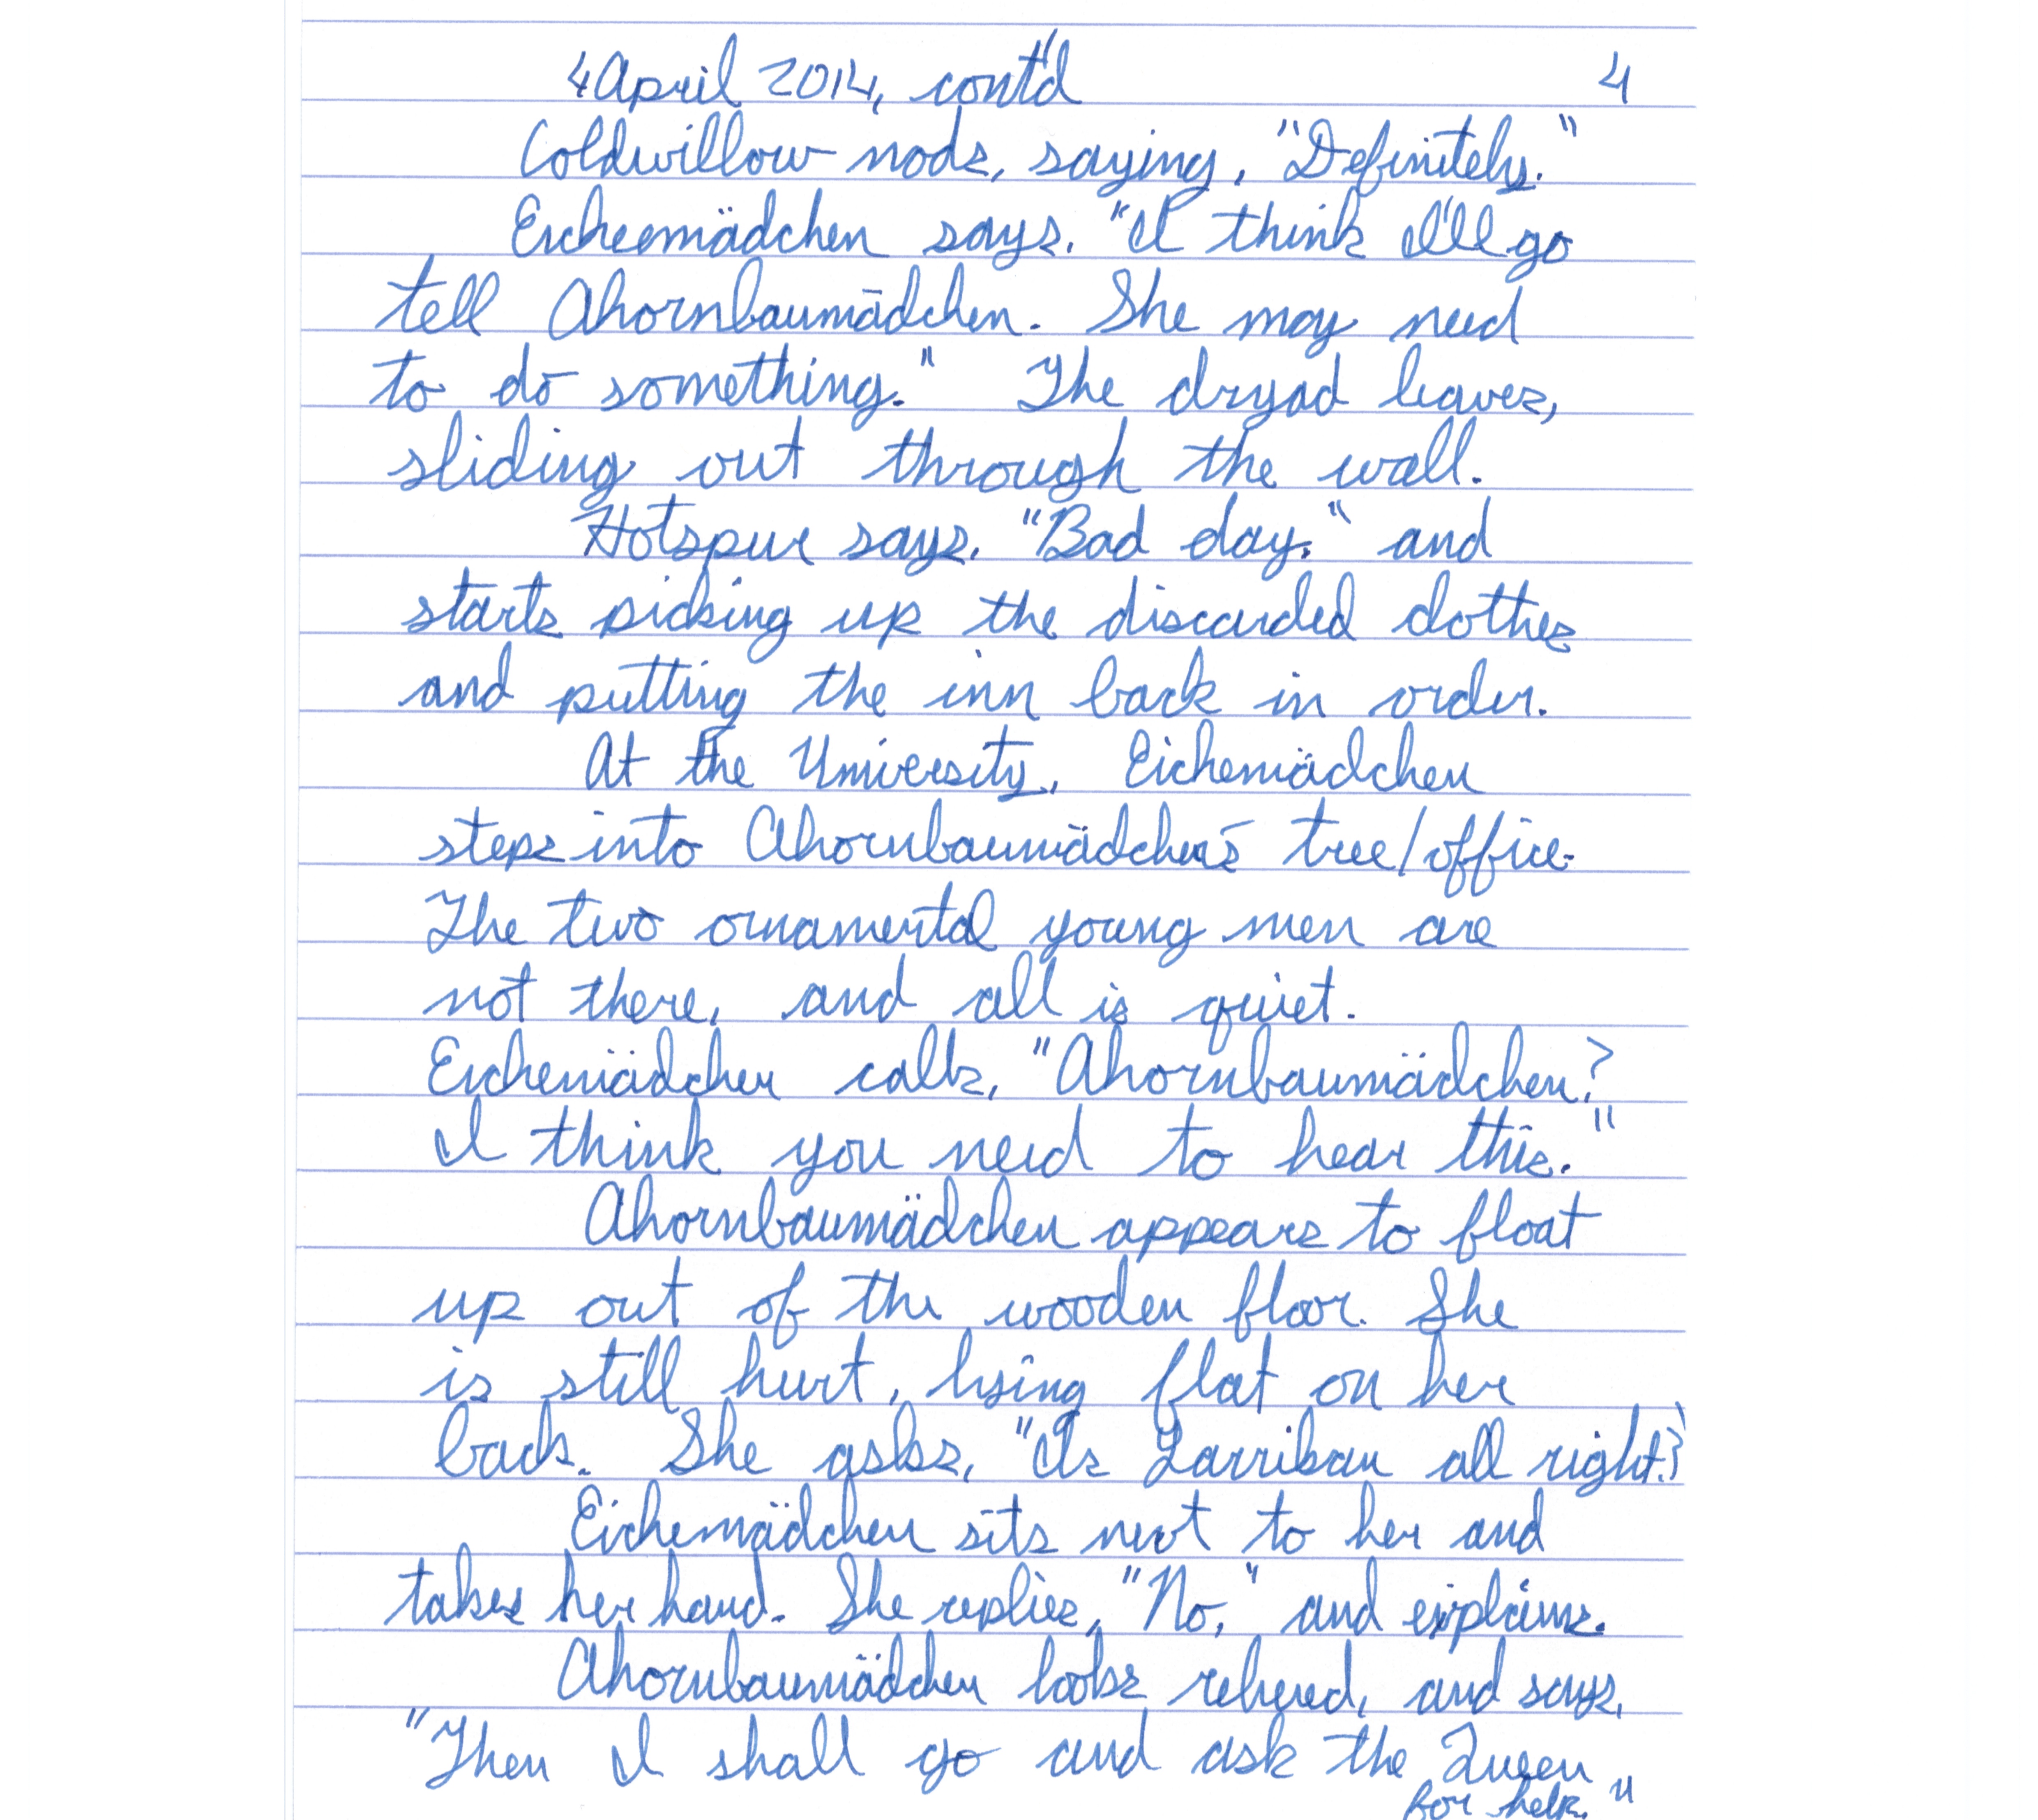 4 April 2014, cont'd 4
Coldwillow nods, saying, "Definitely."
Eichenmädchen says, "I think I'll go
tell Ahornbaumädchen. She may need
to do something." The dryad leaves,
sliding out through the wall.
Hotspur says, "Bad day." and
starts picking up the discarded clothes
and putting the inn back in order.
At the University, Eichenmädchen
steps into Ahornbaumädchen's tree/office.
The two ornamental young men are
not there, and all is quiet.
Eichenmädchen calls, "Ahornbaumädchen?
I think you need to hear this."
Ahornbaumädchen appears to float
up out of the wooden floor. She
is still hurt, lying flat on her
back. She asks, "Is Larriban all right?"
Eichenmädchen sits next to her and
takes her hand. She replies, "No," and explains.
Ahornbaumädchen looks relieved, and says,
"Then I shall go and ask the Queen
for help."